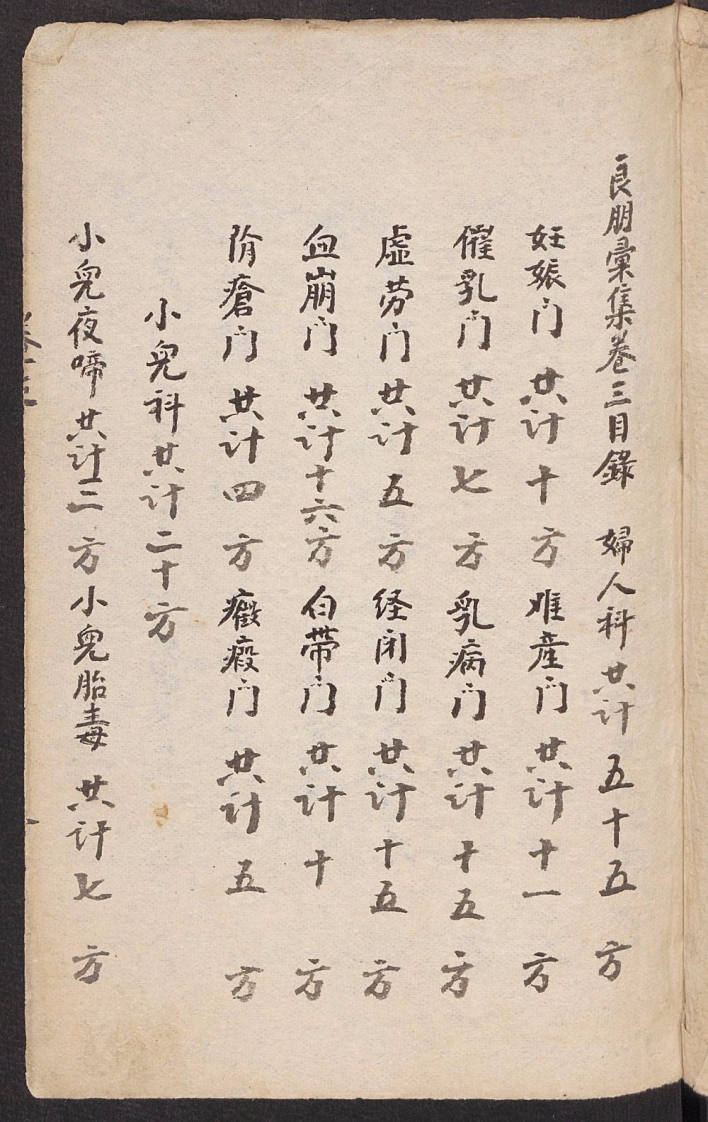 良朋彙集卷三目錄 婦人科共计五十五方
妊娠门共计十方难産门共计十一方
催乳门共计七方乳病门共计十五方
虛劳门共计五方经闭门共计十五方
血崩门共计十六方白带门共计十方
阴瘡门共计四方癥瘕门共计五方
小兒科共计二十方
小兒夜啼共计二方小兒胎毒共计七方